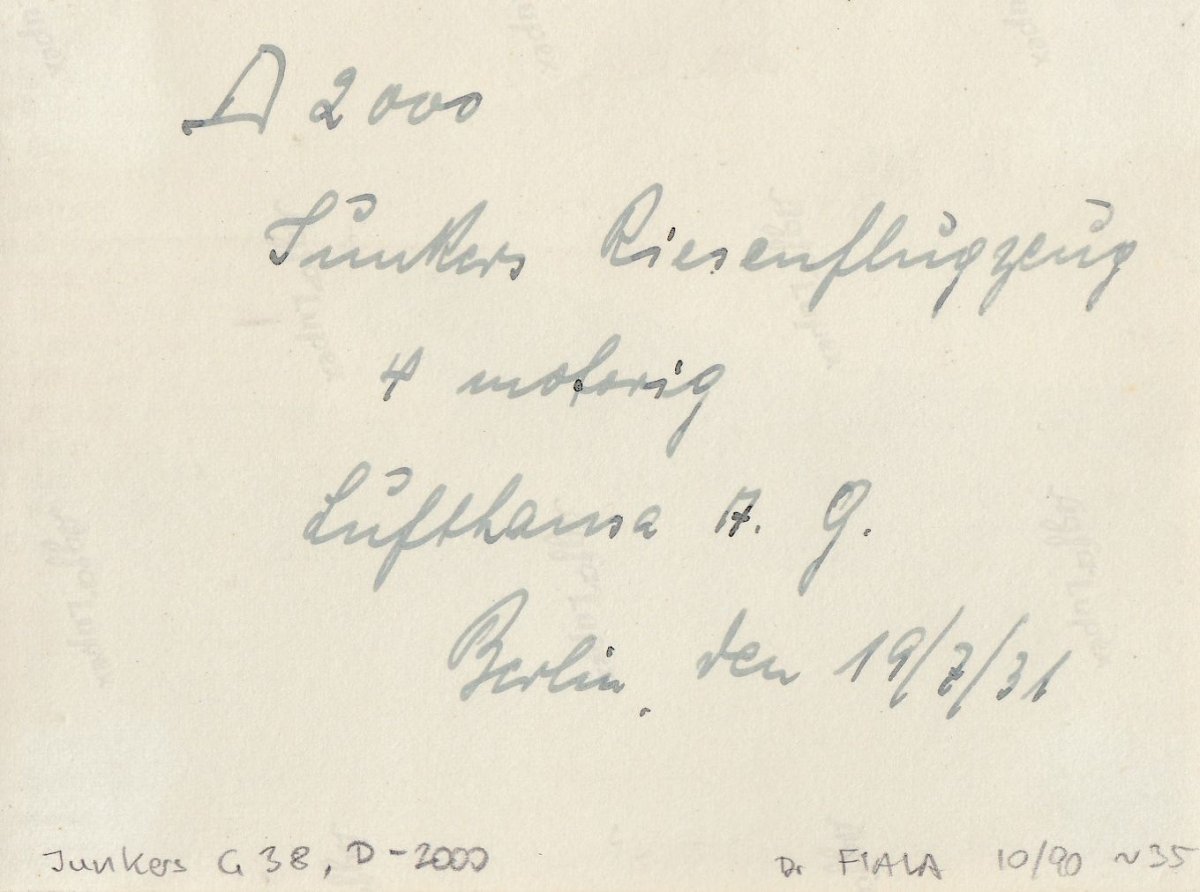 D 2000
Junkers Riesenflugzeug
4 motorig
Lufthansa A. G.
Berlin, den 19/7/31
Junkers G 38, D-2000
Dr FIALA 10/90 ~35